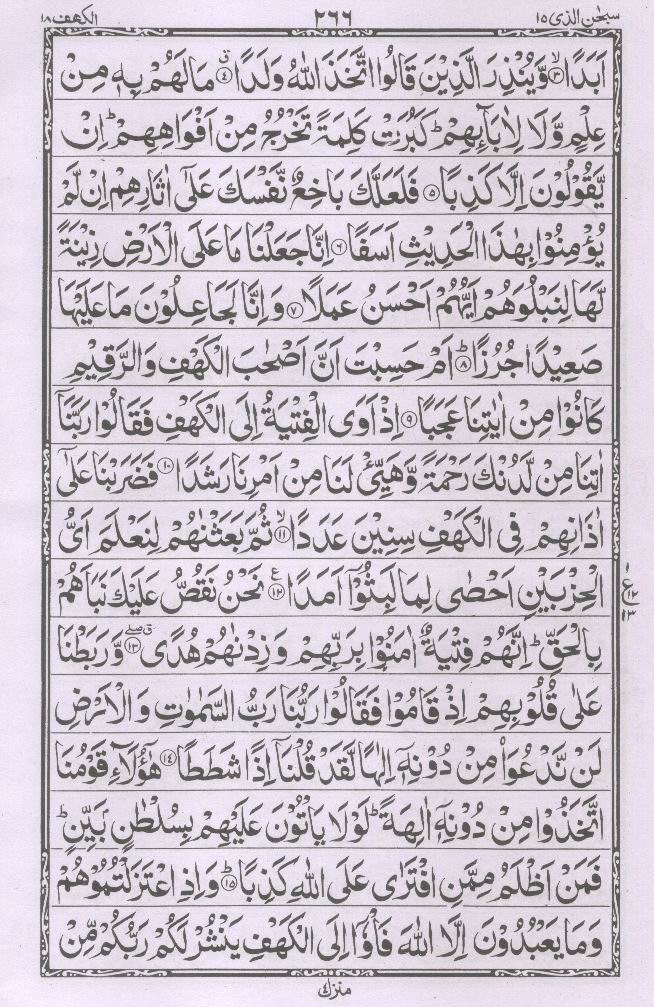 سبحٰن الذی ١٥ ٢٦٦ الکهف ١٨
اَبَدًا ۙ﴿٣﴾ وَّیُنْذِرَ الَّذِیْنَ قَالُوا اتَّخَذَ اللّٰهُ وَلَدًا ۗ﴿٤﴾ مَا لَهُمْ بِهٖ مِنْ
عِلْمٍ وَّلَا لِاٰبَآئِهِمْ ؕ کَبُرَتْ کَلِمَةً تَخْرُجُ مِنْ اَفْوَاهِهِمْ ؕ اِنْ
یَّقُوْلُوْنَ اِلَّا کَذِبًا ﴿٥﴾ فَلَعَلَّكَ بَاخِعٌ نَّفْسَكَ عَلٰۤی اٰثَارِهِمْ اِنْ لَّمْ
یُؤْمِنُوْا بِهٰذَا الْحَدِیْثِ اَسَفًا ﴿٦﴾ اِنَّا جَعَلْنَا مَا عَلَی الْاَرْضِ زِیْنَةً
لَّهَا لِنَبْلُوَهُمْ اَیُّهُمْ اَحْسَنُ عَمَلًا ﴿٧﴾ وَ اِنَّا لَجَاعِلُوْنَ مَا عَلَیْهَا
صَعِیْدًا جُرُزًا ؕ﴿٨﴾ اَمْ حَسِبْتَ اَنَّ اَصْحٰبَ الْکَهْفِ وَ الرَّقِیْمِ
کَانُوْا مِنْ اٰیٰتِنَا عَجَبًا ﴿٩﴾ اِذْ اَوَی الْفِتْیَةُ اِلَی الْکَهْفِ فَقَالُوْا رَبَّنَاۤ
اٰتِنَا مِنْ لَّدُنْكَ رَحْمَةً وَّهَیِّئْ لَنَا مِنْ اَمْرِنَا رَشَدًا ﴿١٠﴾ فَضَرَبْنَا عَلٰۤی
اٰذَانِهِمْ فِی الْکَهْفِ سِنِیْنَ عَدَدًا ۙ﴿١١﴾ ثُمَّ بَعَثْنٰهُمْ لِنَعْلَمَ اَیُّ
الْحِزْبَیْنِ اَحْصٰی لِمَا لَبِثُوْۤا اَمَدًا ﴿١٢﴾ ع نَحْنُ نَقُصُّ عَلَیْكَ نَبَاَهُمْ
١ ع ١٢ ١٣
بِالْحَقِّ ؕ اِنَّهُمْ فِتْیَةٌ اٰمَنُوْا بِرَبِّهِمْ وَ زِدْنٰهُمْ هُدًی ﴿١٣﴾ ق صلے وَّ رَبَطْنَا
عَلٰی قُلُوْبِهِمْ اِذْ قَامُوْا فَقَالُوْا رَبُّنَا رَبُّ السَّمٰوٰتِ وَ الْاَرْضِ
لَنْ نَّدْعُوَا۠ مِنْ دُوْنِهٖۤ اِلٰهًا لَّقَدْ قُلْنَاۤ اِذًا شَطَطًا ﴿١٤﴾ هٰۤؤُلَآءِ قَوْمُنَا
اتَّخَذُوْا مِنْ دُوْنِهٖۤ اٰلِهَةً ؕ لَوْ لَا یَاْتُوْنَ عَلَیْهِمْ بِسُلْطٰنٍۭ بَیِّنٍ ؕ
فَمَنْ اَظْلَمُ مِمَّنِ افْتَرٰی عَلَی اللّٰهِ کَذِبًا ؕ﴿١٥﴾ وَ اِذِ اعْتَزَلْتُمُوْهُمْ
وَ مَا یَعْبُدُوْنَ اِلَّا اللّٰهَ فَاْوٗۤا اِلَی الْکَهْفِ یَنْشُرْ لَکُمْ رَبُّکُمْ مِّنْ
منزل ٤